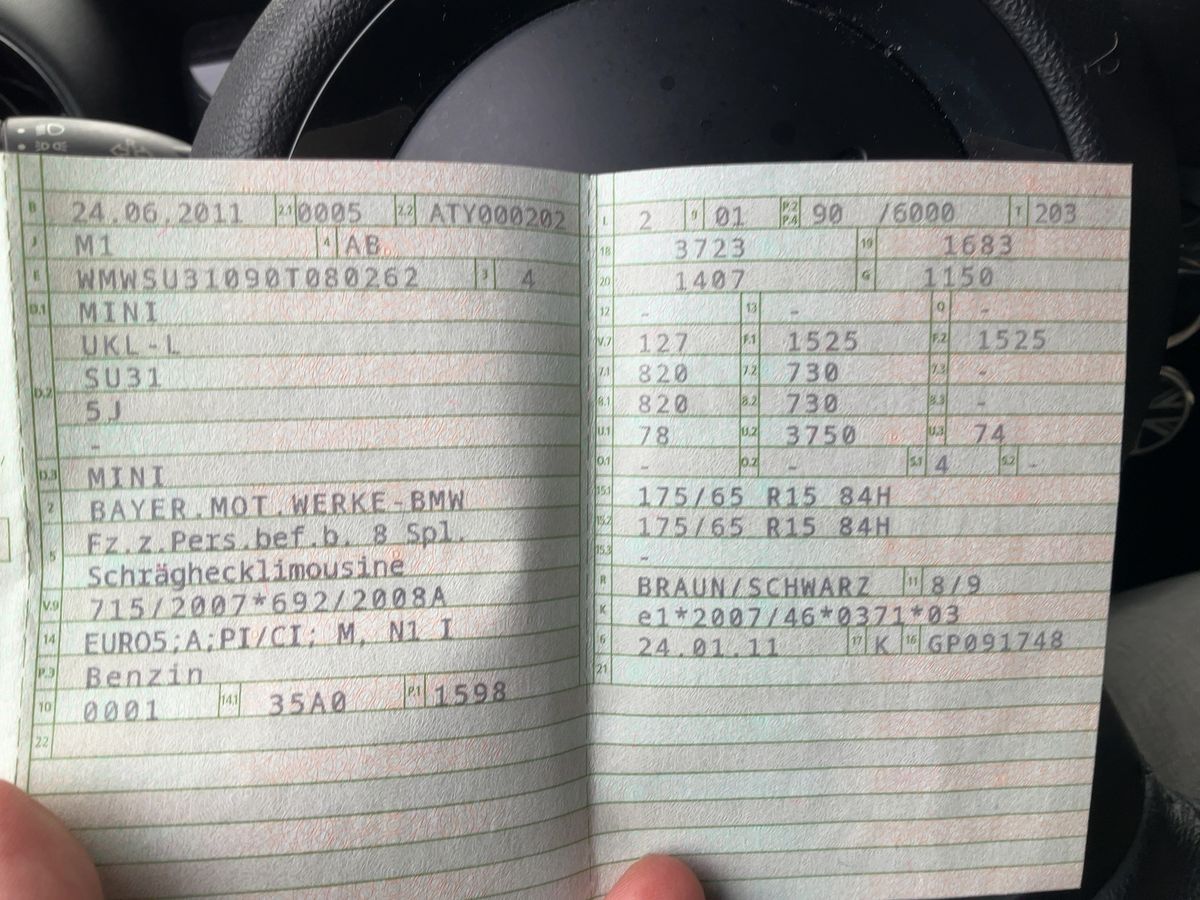 B 24.06.2011 2.1 0005 2.2 ATY000202
J M1 4 AB
E WMWSU31090T080262 3 4
D.1 MINI
UKL-L
D.2 SU31
5J
-
D.3 MINI
2 BAYER.MOT.WERKE-BMW
5 Fz.z.Pers.bef.b. 8 Spl.
Schräghecklimousine
V.9 715/2007*692/2008A
14 EURO5;A;PI/CI; M, N1 I
P.3 Benzin
10 0001 14.1 35A0 P.1 1598
22
L 2 9 01 P.2 P.4 90 /6000 T 203
18 3723 19 1683
20 1407 G 1150
12 - 13 - Q -
V.7 127 F.1 1525 F.2 1525
7.1 820 7.2 730 7.3 -
8.1 820 8.2 730 8.3 -
U.1 78 U.2 3750 U.3 74
O.1 - O.2 - S.1 4 S.2 -
15.1 175/65 R15 84H
15.2 175/65 R15 84H
15.3 -
R BRAUN/SCHWARZ 11 8/9
K e1*2007/46*0371*03
6 24.01.11 17 K 16 GP091748
21